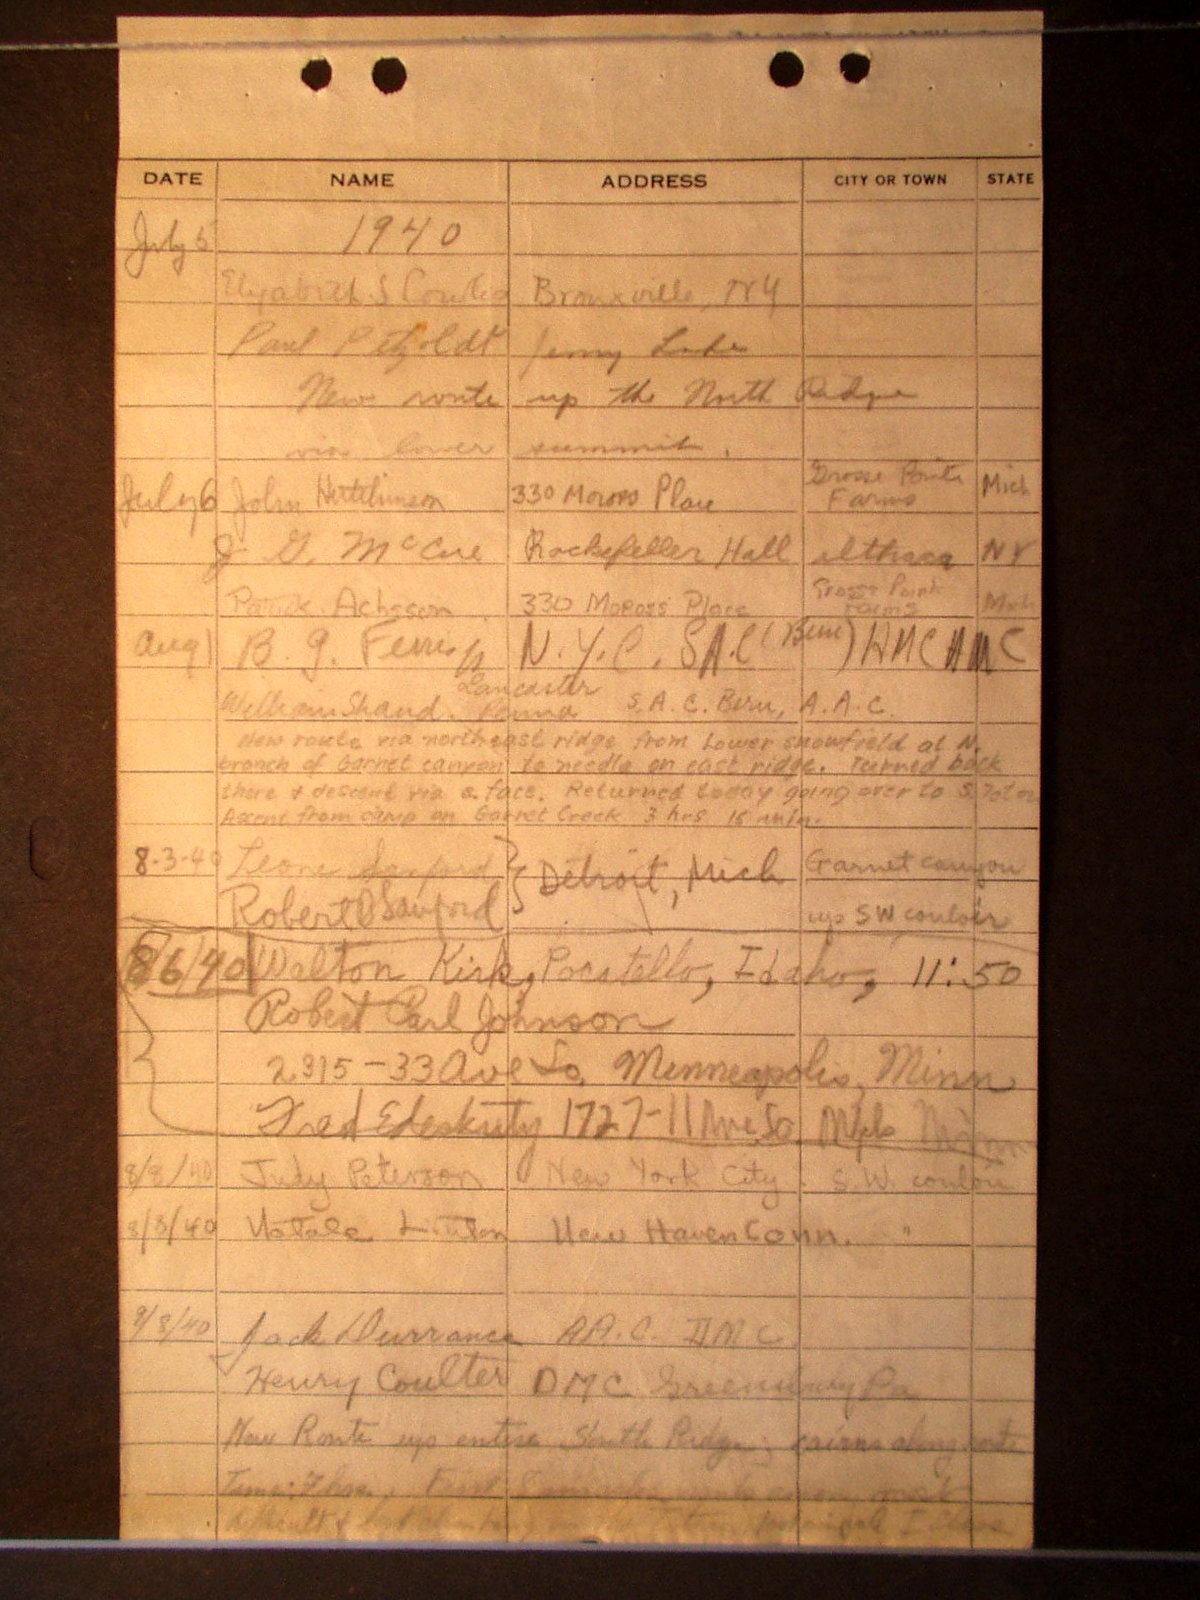 DATE NAME ADDRESS CITY OR TOWN STATE
July 5 1940
Elizabeth S Bronxville, NY
Paul Petzoldt Jenny Lake
New route up the North Ridge
via lower summit.
July 6 John Hutchinson 330 Moross Place Grosse Pointe Farms Mich
J G. McCue Rockefeller Hall Ithaca NY
Acheson 330 Moross Place Grosse Point Farms Mich
Aug 1 B. G. Ferris Jr N.Y.C. SAC (Bern) HMC AMC
William Shand. Lancaster Penna S.A.C. Bern, A.A.C.
New route via northeast ridge from lower snowfield at N.
branch of Garnet canyon to needle on east ridge. Turned back
there & descent via e. face. Returned today going over to S. Teton
Ascent from camp on Garnet Creek 3 hrs 15 min.
8-3-40 Leone Sanford } Detroit, Mich Garnet canyon
Robert Sanford up SW couloir
8/6/40 Walton Kirk, Pocatello, Idaho, 11:50
Robert Carl Johnson
2315-33 Ave So. Minneapolis, Minn
Fred 1727-11 Ave So. Mpls Minn
8/8/40 Judy Peterson New York City. S.W. couloir
8/8/40 New Haven Conn. "
Jack Durrance A.A.C. DMC
Henry Coulter DMC Pa
New Route up entire South Ridge; cairns along route
Time: 7 hrs.
difficult &